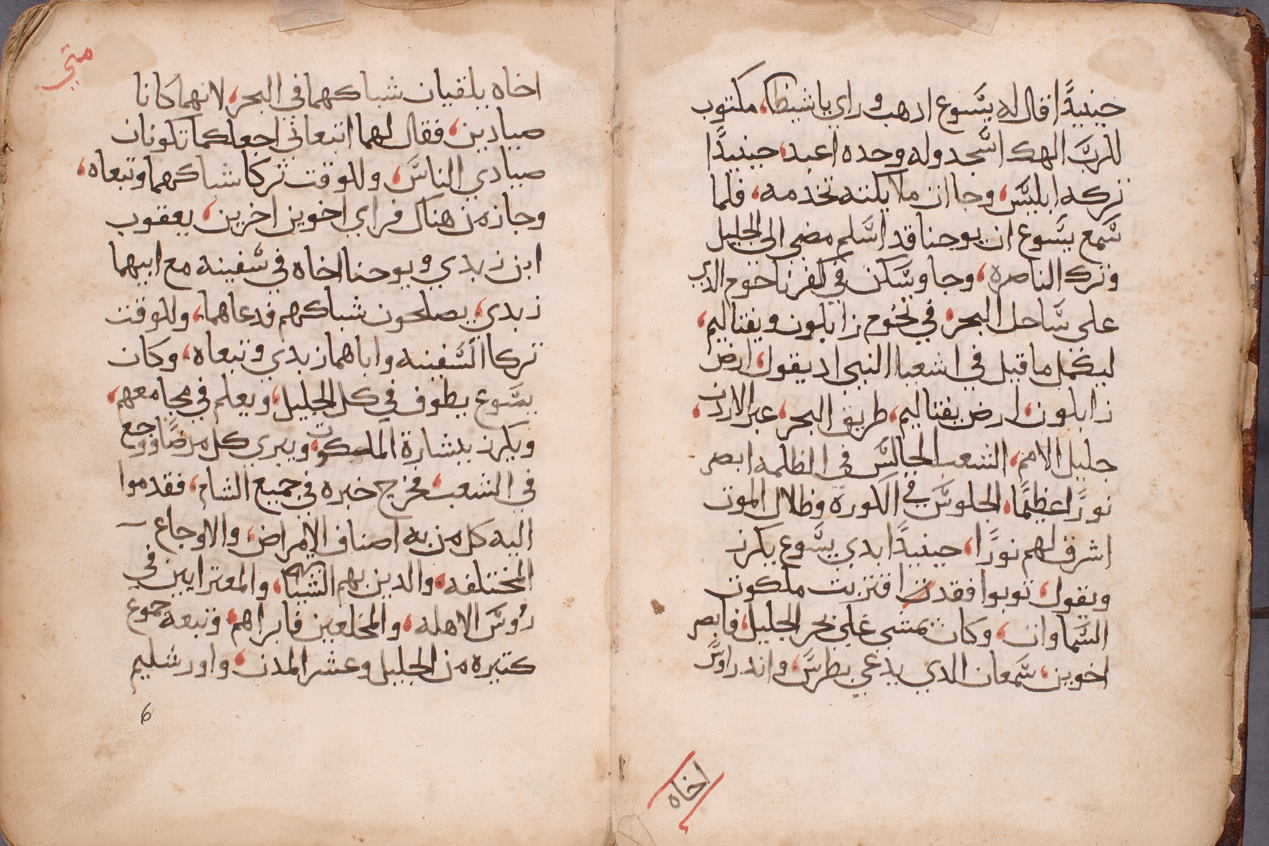 حينيدًا قال له يسوع ادهب وراي يا شيطان مكتوب
للرب الهك اسجد وله وحده اعبد حينيدًا
تركه ابليس وجاات ملايكته تخدمه فلما
سمع يسوع ان يوحنا قد اسلم مضي الي الجليل
وترك الناصره وجا وسكن في كفرناحوم الدي
علي ساحل البحر في تخوم زابلون ويفتاليم
ليكمل ما قيل في اشعيا النبي اد يقول ارض
زابلون ارض يفتاليم طريق البحر عبر الاردن
جليل الامم الشعب الجالس في الظلمه ابصر
نورًا عظيمًا الجلوس في الكورة وظلال الموت
اشرق لهم نورًا حينيدًا ابدي يسوع يكرز
ويقول توبوا فقد اقتربت ملكوت
السماوات وكان يمشي علي بحر الجليل فابصر
اخوين سمعان الدي يدعي بطرس واندراوس
اخاه
متي
اخاه يلقيان شباكهما في البحر لانهما كانا
صيادين فقال لهما اتبعاني اجعلكما تكونان
صيادي الناس وللوقت تركا شباكهما وتبعاه
وجاز من هناك فراي اخوين اخرين يعقوب
ابن زبدي ويوحنا اخاه في سفينه مع ابيهما
زبدي يصلحون شباكهم فدعاهما وللوقت
تركا السفينه واباهما زبدي وتبعاه وكان
يسوع يطوف في كل الجليل ويعلم في مجامعهم
ويكرز ببشارة الملكوت ويبري كل مرضًا ووجع
في الشعب فخرج خبره في جميع الشام فقدموا
اليه كل من به اصناف الامراض والاوجاع
المختلفه والدين بهم الشياطين والمعترايين في
روس الاهله والمخلعين فابراهم وتبعه جموع
كتيره من الجليل وعشر المدن واورشليم
6